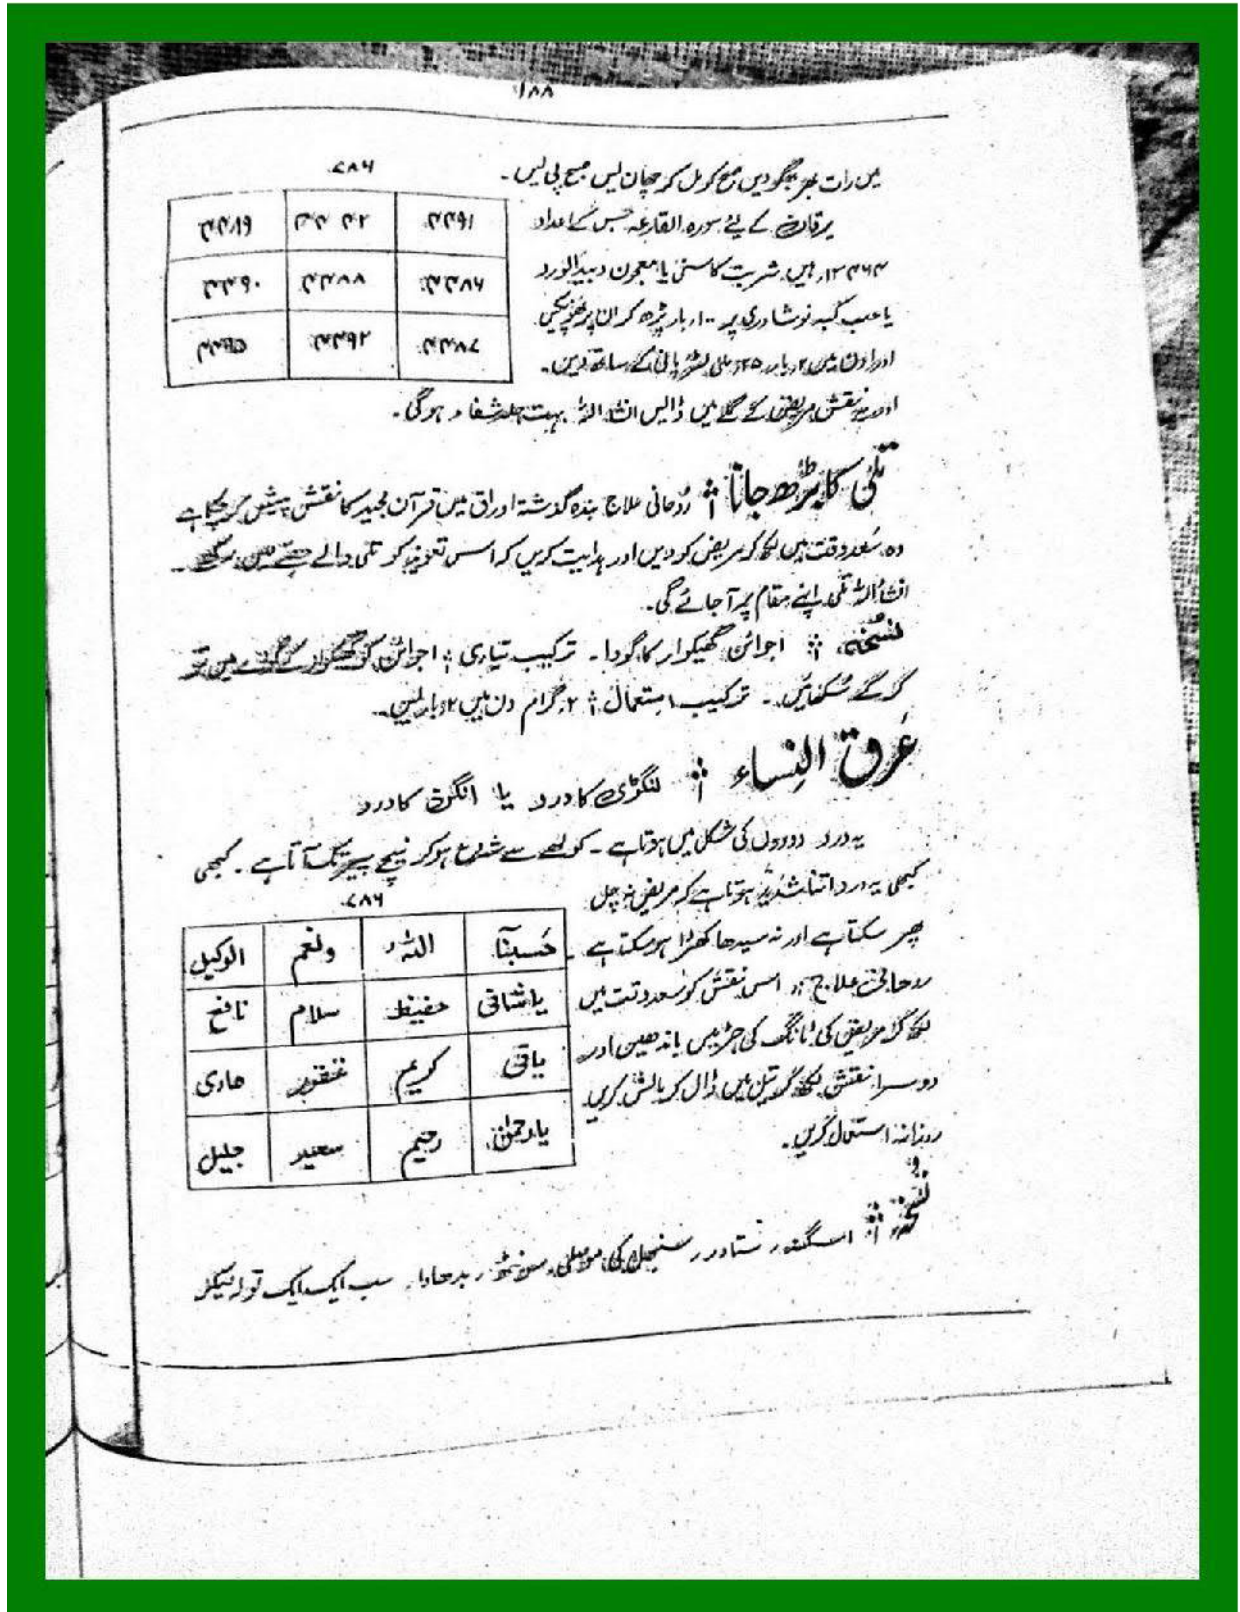 ۱۸۸
میں رات بھر بھگو دیں صبح کو مل کر چھان لیں صبح پی لیں۔
۷۸۶
یرقان کے لئے سورہ القارعہ جس کے اعداد
۱۳۴۶۳ ہیں شربت کاسنی یا معجون دبیدالورد
یا حب کبد نوشادری پر ۱۰۰ بار پڑھ کر ان پر پھونکیں
اور دن میں ۲ بار ۲۵ ملی لیٹر پانی کے ساتھ دیں۔
اور یہ نقش مریض کے گلے میں ڈالیں انشاء اللہ بہت جلد شفاء ہوگی۔
تلی کا بڑھ جانا : روحانی علاج بندہ گذشتہ اوراق میں قرآن مجید کا نقش پیش کر چکا ہے
وہ سعد وقت میں لکھ کر مریض کو دیں اور ہدایت کریں کہ اس تعویذ کو تلی والے حصے میں رکھے۔
انشاء اللہ تلی اپنے مقام پر آ جائے گی۔
نسخہ : اجوائن گھیکوار کا گودا۔ ترکیب تیاری : اجوائن کو گھیکوار کے گودے میں تر
کر کے سکھائیں۔ ترکیب استعمال : ۲ گرام دن میں ۲ بار لیں۔
عرق النساء : لنگڑی کا درد یا انگن کا درد
یہ درد دوروں کی شکل میں ہوتا ہے۔ کولھے سے شروع ہو کر نیچے پیر تک آتا ہے۔ کبھی
کبھی یہ درد اتنا شدید ہوتا ہے کہ مریض نہ چل
۷۸۶
پھر سکتا ہے اور نہ سیدھا کھڑا ہو سکتا ہے۔
روحانی علاج : اس نقش کو سعد وقت میں
لکھ کر مریض کی ٹانگ کی جڑ میں باندھیں اور
دوسرا نقش لکھ کر تیل میں ڈال کر مالش کریں
روزانہ استعمال کریں۔
حسبنا اللہ ونعم الوکیل
یا شافی حفیظ سلام نافع
یا باقی کریم غفور ھادی
یا رحمٰن رحیم سعید جلیل
نسخہ : اسگندر ستاور سنبھل کی موصلی سونٹھ بدھارا۔ سب ایک ایک تولہ لیکر